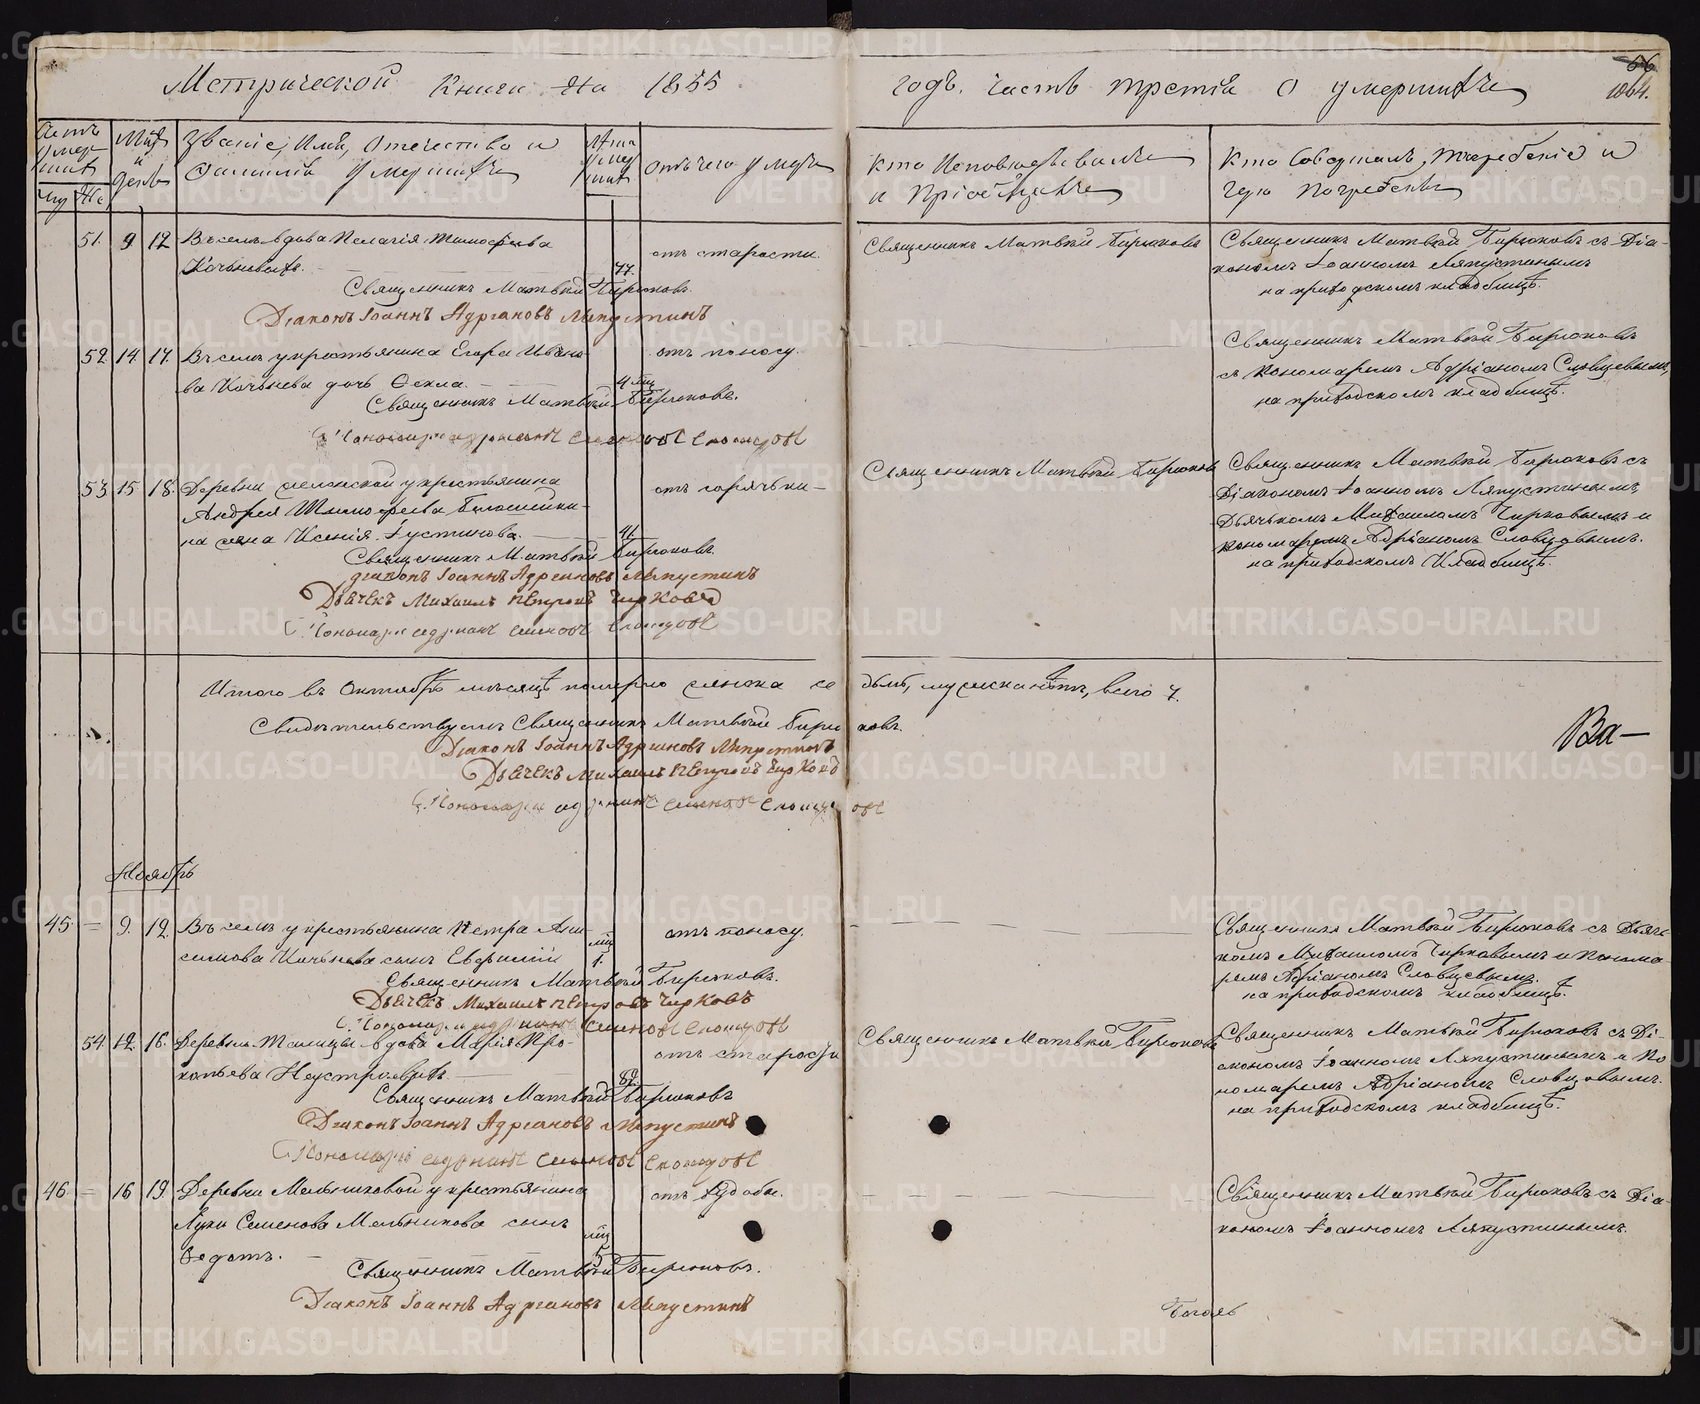 Метрической Книги На 1855 годъ, часть третія о умершихъ
56
1064.
Счетъ умершихъ
Муж
Же
Мѣс. и день
Званіе, имя, отечество и фамилія умершихъ
Лѣта умершихъ
Отъ чего умеръ
Кто исповѣдывалъ и пріобщалъ
Кто Совершалъ погребеніе и гдѣ погребены
51. 9 12 Въ семъ вдова Пелагія Тимофѣева
Кочьнева. 77. отъ старости.
Священникъ Матвѣй Бирюковъ.
Діаконъ Іоаннъ Адріановъ Ляпустинъ
Священникъ Матвѣй Бирюковъ
Священникъ Матвѣй Бирюковъ съ Діа-
кономъ Іоанномъ Ляпустинымъ
на приходскомъ кладбищѣ.
52 14. 17. Въ семъ у крестьянина Егора Ивано-
ва Кочьнева дочь Ѳекла. 4 мц отъ поносу.
Священникъ Матвѣй Бирюковъ.
Пономарь Адріанъ Словцовъ
Священникъ Матвѣй Бирюковъ
съ Пономаремъ Адріаномъ Словцевымъ,
на приходскомъ кладбищѣ.
53 15 18. Деревни у крестьянина
Андрея Тимофеева
на Ксенія Іустинова. 41. отъ горячьки
Священникъ Матвѣй Бирюковъ
діаконъ Іоаннъ Адріановъ Ляпустинъ
Дьячекъ Михаилъ Петровъ Чирковъ
Пономарь Адріанъ Словцовъ
Священникъ Матвѣй Бирюковъ
Священникъ Матвѣй Бирюковъ съ
Діакономъ Іоанномъ Ляпустинымъ,
Дьячькомъ Михаиломъ Чирковымъ и
пономаремъ Адріаномъ Словцовымъ.
на приходскомъ Кладбищѣ.
Итого въ Октябрѣ мѣсяцѣ померло женска седьмь, мужеска нѣтъ, всего 7.
Свидѣтельствуемъ Священникъ Матвѣй Бирюковъ.
Діаконъ Іоаннъ Адріановъ Ляпустинъ
Дьячекъ Михаилъ Петровъ Чирковъ
Пономарь Адріанъ Словцовъ
Ва-
Ноябрь
45. 9. 12. Въ семъ у крестьянина Петра Ани-
симова Кочьнева сынъ Евфимій мц 1. отъ поносу.
Священникъ Матвѣй Бирюковъ.
Дьячекъ Михаилъ Петровъ Чирковъ
Пономарь Адріанъ Словцовъ
Священникъ Матвѣй Бирюковъ съ Дьячь-
комъ Михаиломъ Чирковымъ и Понома-
ремъ Адріаномъ Словцевымъ.
на приходскомъ кладбищѣ.
54 12. 16. Деревни Талицы вдова Марія Про-
копьева Неустроева 82. отъ старости
Священникъ Матвѣй Бирюковъ
Діаконъ Іоаннъ Адріановъ Ляпустинъ
Пономарь Адріанъ Словцовъ
Священникъ Матвѣй Бирюковъ
Священникъ Матвѣй Бирюковъ съ Ді-
акономъ Іоанномъ Ляпустинымъ и По
номаремъ Адріаномъ Словцовымъ.
на приходскомъ кладбищѣ.
46 16 19. Деревни Мельниковой у крестьянина
Луки Семенова Мельникова сынъ
Ѳедотъ. мц 5 отъ худобы.
Священникъ Матвѣй Бирюковъ.
Діаконъ Іоаннъ Адріановъ Ляпустинъ
Священникъ Матвѣй Бирюковъ съ Діа-
кономъ Іоанномъ Ляпустинымъ.
METRIKI.GASO-URAL.RU